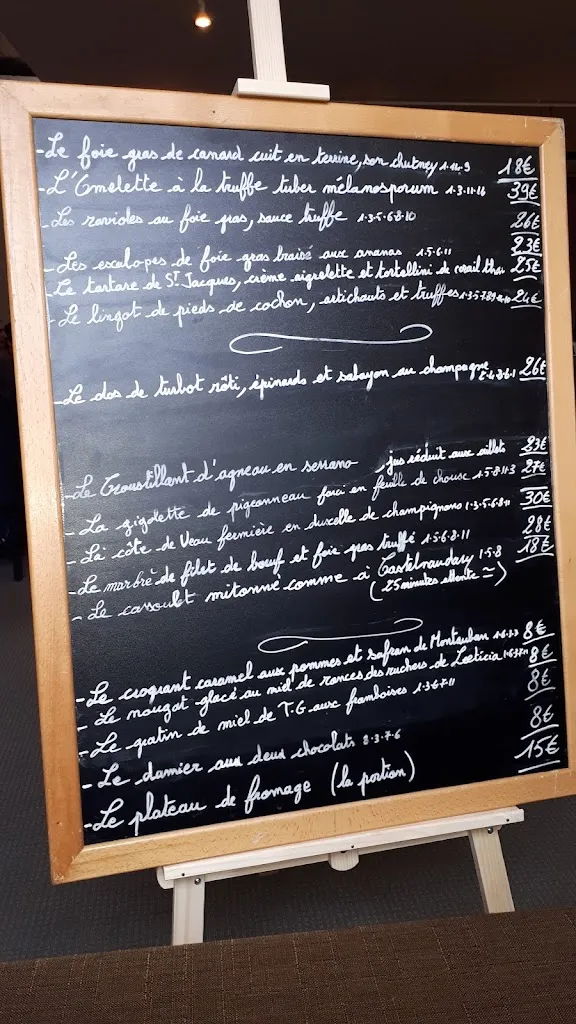 -Le foie gras de canard cuit en terrine, son chutney 1.11.9 18€
-L'Omelette à la truffe tuber mélanosporum 1.3.11.14 39€
-Les ravioles au foie gras, sauce truffe 1.3.5.6.8.10 26€
-Les escalopes de foie gras braisé aux ananas 1.5.6.11 23€
-Le tartare de St Jacques, crème aigrelette et tortellini de corail 25€
-Le lingot de pieds de cochon, artichauts et truffes 24€
-Le dos de turbot rôti, épinards et sabayon au champagne 26€
-Le Croustillant d'agneau en serrano, jus réduit aux aillets 23€
-La gigolette de pigeonneau farci en feuille de chouse 1.5.8.11.3 27€
-La côte de Veau fermière en duxelle de champignons 1.3.5.6.8.11 30€
-Le marbré de filet de bœuf et foie gras truffé 1.5.6.8.11 28€
-Le cassoulet mitonné comme à Castelnaudary 1.5.8 18€
(25 minutes attente =)
-Le croquant caramel aux pommes et safran de Montauban 1.6.3.7 8€
-Le nougat glacé au miel de ronces des ruchers de Lœticia 8€
-Le gratin de miel de T.G aux framboises 1.3.6.7.11 8€
-Le damier aux deux chocolats 8.3.7.6 8€
-Le plateau de fromage (la portion) 15€